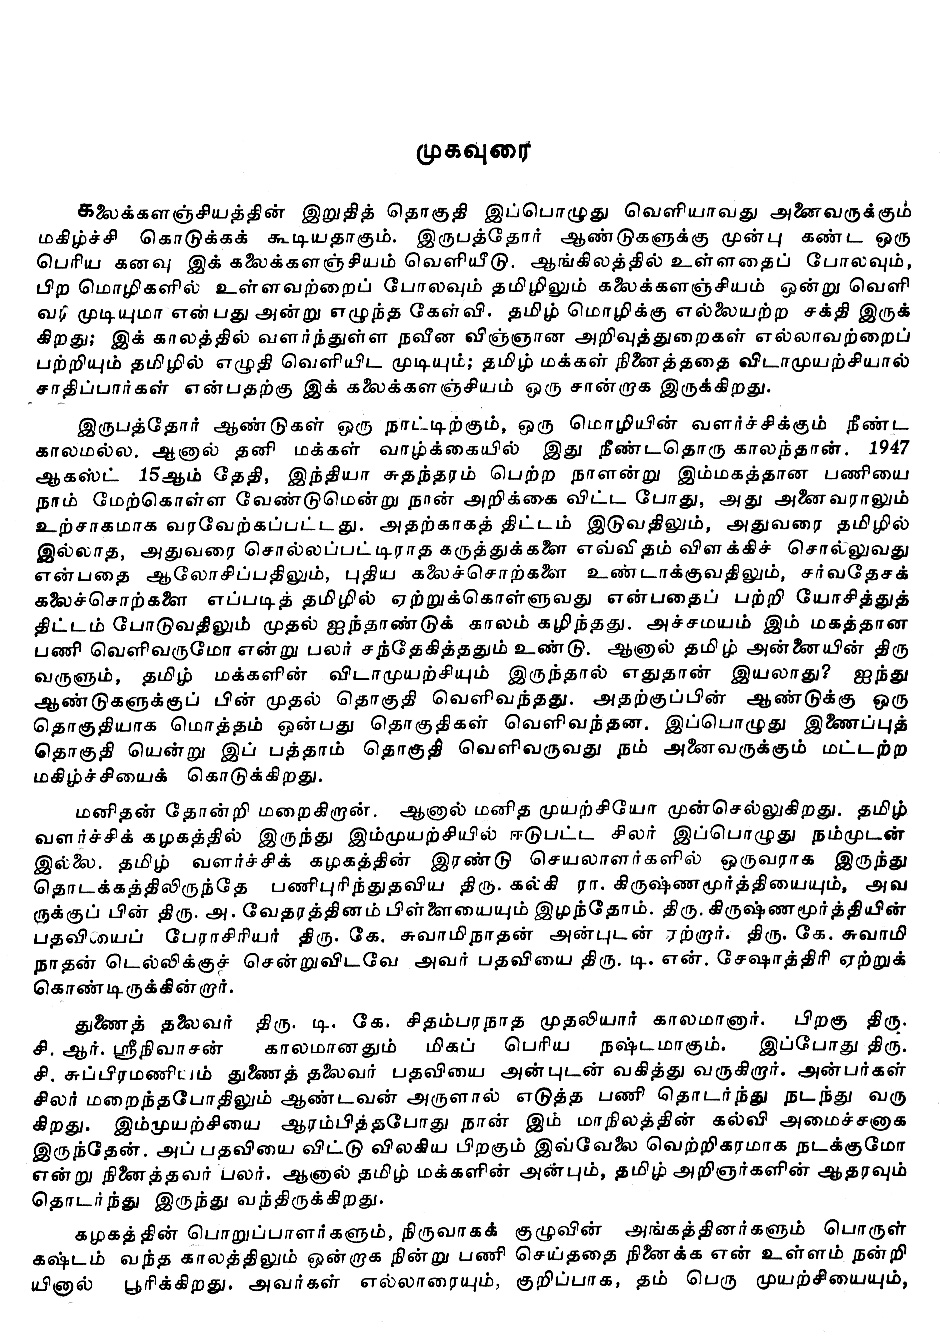 முகவுரை
கலைக்களஞ்சியத்தின் இறுதித் தொகுதி இப்பொழுது வெளியாவது அனைவருக்கும்
மகிழ்ச்சி கொடுக்கக் கூடியதாகும். இருபத்தோர் ஆண்டுகளுக்கு முன்பு கண்ட ஒரு
பெரிய கனவு இக் கலைக்களஞ்சியம் வெளியீடு. ஆங்கிலத்தில் உள்ளதைப் போலவும்,
பிற மொழிகளில் உள்ளவற்றைப் போலவும் தமிழிலும் கலைக்களஞ்சியம் ஒன்று வெளி
வர முடியுமா என்பது அன்று எழுந்த கேள்வி. தமிழ் மொழிக்கு எல்லையற்ற சக்தி இருக்
கிறது; இக் காலத்தில் வளர்ந்துள்ள நவீன விஞ்ஞான அறிவுத்துறைகள் எல்லாவற்றைப்
பற்றியும் தமிழில் எழுதி வெளியிட முடியும்; தமிழ் மக்கள் நினைத்ததை விடாமுயற்சியால்
சாதிப்பார்கள் என்பதற்கு இக் கலைக்களஞ்சியம் ஒரு சான்றாக இருக்கிறது.
இருபத்தோர் ஆண்டுகள் ஒரு நாட்டிற்கும், ஒரு மொழியின் வளர்ச்சிக்கும் நீண்ட
காலமல்ல. ஆனால் தனி மக்கள் வாழ்க்கையில் இது நீண்டதொரு காலந்தான். 1947
ஆகஸ்ட் 15ஆம் தேதி, இந்தியா சுதந்தரம் பெற்ற நாளன்று இம்மகத்தான பணியை
நாம் மேற்கொள்ள வேண்டுமென்று நான் அறிக்கை விட்ட போது, அது அனைவராலும்
உற்சாகமாக வரவேற்கப்பட்டது. அதற்காகத் திட்டம் இடுவதிலும், அதுவரை தமிழில்
இல்லாத, அதுவரை சொல்லப்பட்டிராத கருத்துக்களை எவ்விதம் விளக்கிச் சொல்லுவது
என்பதை ஆலோசிப்பதிலும், புதிய கலைச்சொற்களை உண்டாக்குவதிலும், சர்வதேசக்
கலைச்சொற்களை எப்படித் தமிழில் ஏற்றுக்கொள்ளுவது என்பதைப் பற்றி யோசித்துத்
திட்டம் போடுவதிலும் முதல் ஐந்தாண்டுக் காலம் கழிந்தது. அச்சமயம் இம் மகத்தான
பணி வெளிவருமோ என்று பலர் சந்தேகித்ததும் உண்டு. ஆனால் தமிழ் அன்னையின் திரு
வருளும், தமிழ் மக்களின் விடாமுயற்சியும் இருந்தால் எதுதான் இயலாது? ஐந்து
ஆண்டுகளுக்குப் பின் முதல் தொகுதி வெளிவந்தது. அதற்குப்பின் ஆண்டுக்கு ஒரு
தொகுதியாக மொத்தம் ஒன்பது தொகுதிகள் வெளிவந்தன. இப்பொழுது இணைப்புத்
தொகுதி யென்று இப் பத்தாம் தொகுதி வெளிவருவது நம் அனைவருக்கும் மட்டற்ற
மகிழ்ச்சியைக் கொடுக்கிறது.
மனிதன் தோன்றி மறைகிறான். ஆனால் மனித முயற்சியோ முன்செல்லுகிறது. தமிழ்
வளர்ச்சிக் கழகத்தில் இருந்து இம்முயற்சியில் ஈடுபட்ட சிலர் இப்பொழுது நம்முடன்
இல்லை. தமிழ் வளர்ச்சிக் கழகத்தின் இரண்டு செயலாளர்களில் ஒருவராக இருந்து
தொடக்கத்திலிருந்தே பணிபுரிந்துதவிய திரு. கல்கி ரா. கிருஷ்ணமூர்த்தியையும், அவ
ருக்குப் பின் திரு. அ. வேதரத்தினம் பிள்ளையையும் இழந்தோம். திரு. கிருஷ்ணமூர்த்தியின்
பதவியைப் பேராசிரியர் திரு. கே. சுவாமிநாதன் அன்புடன் ஏற்றார். திரு. கே. சுவாமி
நாதன் டெல்லிக்குச் சென்றுவிடவே அவர் பதவியை திரு. டி. என். சேஷாத்திரி ஏற்றுக்
கொண்டிருக்கின்றார்.
துணைத் தலைவர் திரு. டி. கே. சிதம்பரநாத முதலியார் காலமானார். பிறகு திரு.
சி. ஆர். ஸ்ரீநிவாசன் காலமானதும் மிகப் பெரிய நஷ்டமாகும். இப்போது திரு.
சி. சுப்பிரமணியம் துணைத் தலைவர் பதவியை அன்புடன் வகித்து வருகிறார். அன்பர்கள்
சிலர் மறைந்தபோதிலும் ஆண்டவன் அருளால் எடுத்த பணி தொடர்ந்து நடந்து வரு
கிறது. இம்முயற்சியை ஆரம்பித்தபோது நான் இம் மாநிலத்தின் கல்வி அமைச்சனாக
இருந்தேன். அப் பதவியை விட்டு விலகிய பிறகும் இவ்வேலை வெற்றிகரமாக நடக்குமோ
என்று நினைத்தவர் பலர். ஆனால் தமிழ் மக்களின் அன்பும், தமிழ் அறிஞர்களின் ஆதரவும்
தொடர்ந்து இருந்து வந்திருக்கிறது.
கழகத்தின் பொறுப்பாளர்களும், நிருவாகக் குழுவின் அங்கத்தினர்களும் பொருள்
கஷ்டம் வந்த காலத்திலும் ஒன்றாக நின்று பணி செய்ததை நினைக்க என் உள்ளம் நன்றி
யினால் பூரிக்கிறது. அவர்கள் எல்லாரையும், குறிப்பாக, தம் பெரு முயற்சியையும்,